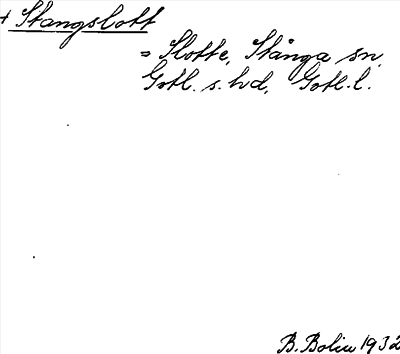 + Stangslott
= Slotte, Stånga sn,
Gotl. s. hd, Gotl. l.
B. Bolin 1932